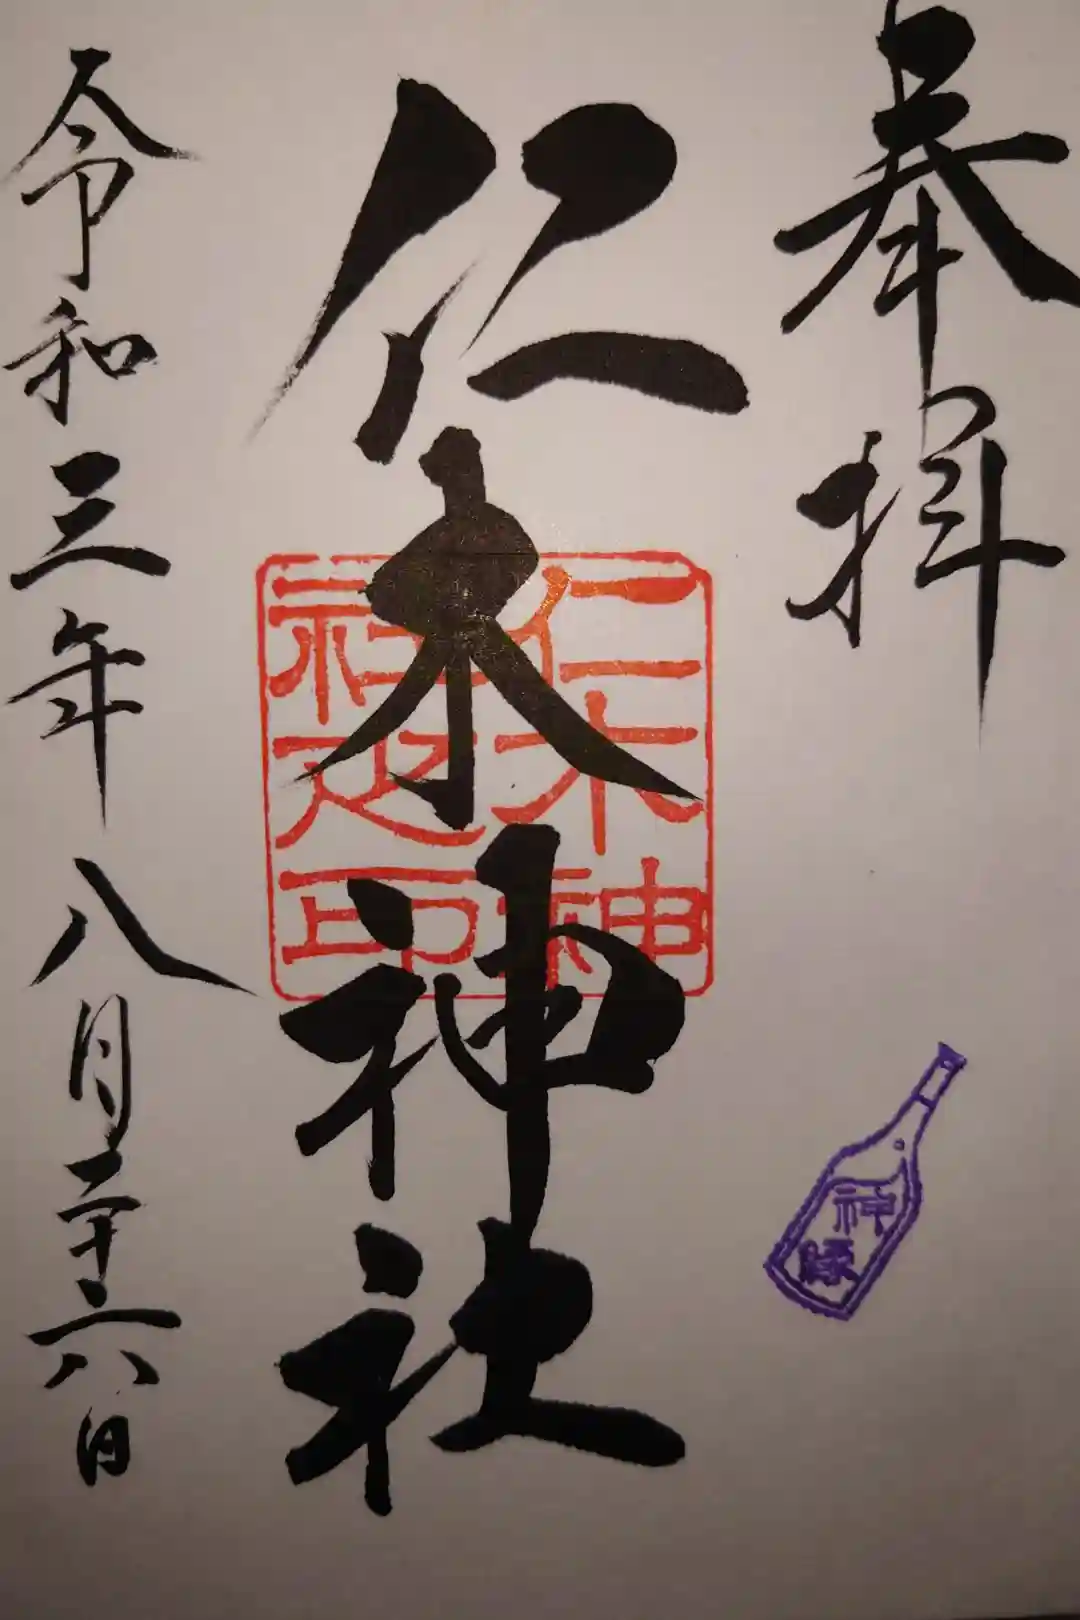 奉拝
仁木神社
仁木神
社之印
令和三年八月二十六日
神
縁